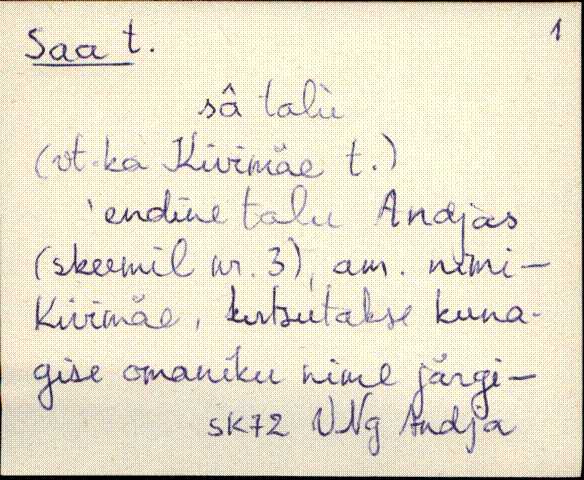 1
Saa t.
sâ talù
(vt. ka Kivimäe t.)
'endine talu Andjas
(skeemil nr. 3), am. nimi –
Kivimäe, kutsutakse kuna-
gise omaniku nime järgi –
SK72 VNg Andja